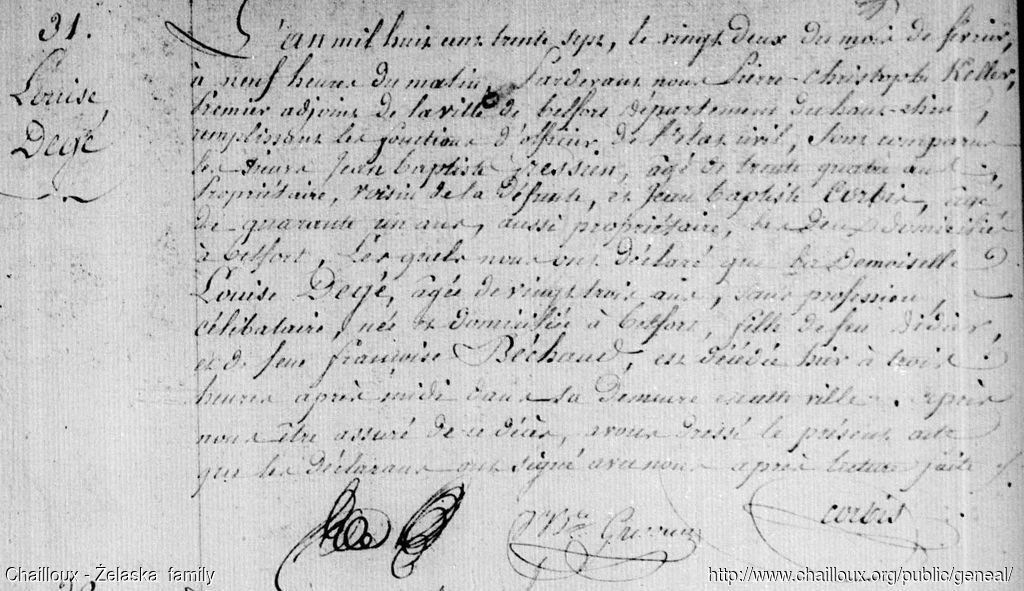 31.
Louise
Degé
L'an mil huit cent trente sept, le vingt deux du mois de février,
à neuf heures du matin, Pardevant nous Pierre-Christophe Keller,
Premier adjoint de la ville de belfort département du haut-rhin,
remplissant les fonctions d'officier de l'état civil, sont comparus
les sieurs Jean Baptiste âgé de trente quatre ans,
Propriétaire, voisin de la défunte, et Jean Baptiste Corbis, âgé
de quarante un ans, aussi propriétaire, les deux domiciliés
à belfort, Les quels nous ont déclaré que la Demoiselle
Louise Degé, âgée de vingt trois ans, sans profession,
célibataire, née et domiciliée à belfort, fille de feu Didier,
et de feue françoise Béchaud, est décédée hier à trois
heures après midi dans sa Demeure en cette ville. Après
nous être assuré de ce décès, avons dressé le présent acte
que les déclarans ont signé avec nous après lecture faite.
corbis
Chailloux - Żelaska family
http://www.chailloux.org/public/geneal/